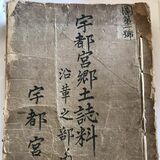 第二號
宇都宮郷土誌料
沿革之部
宇都宮